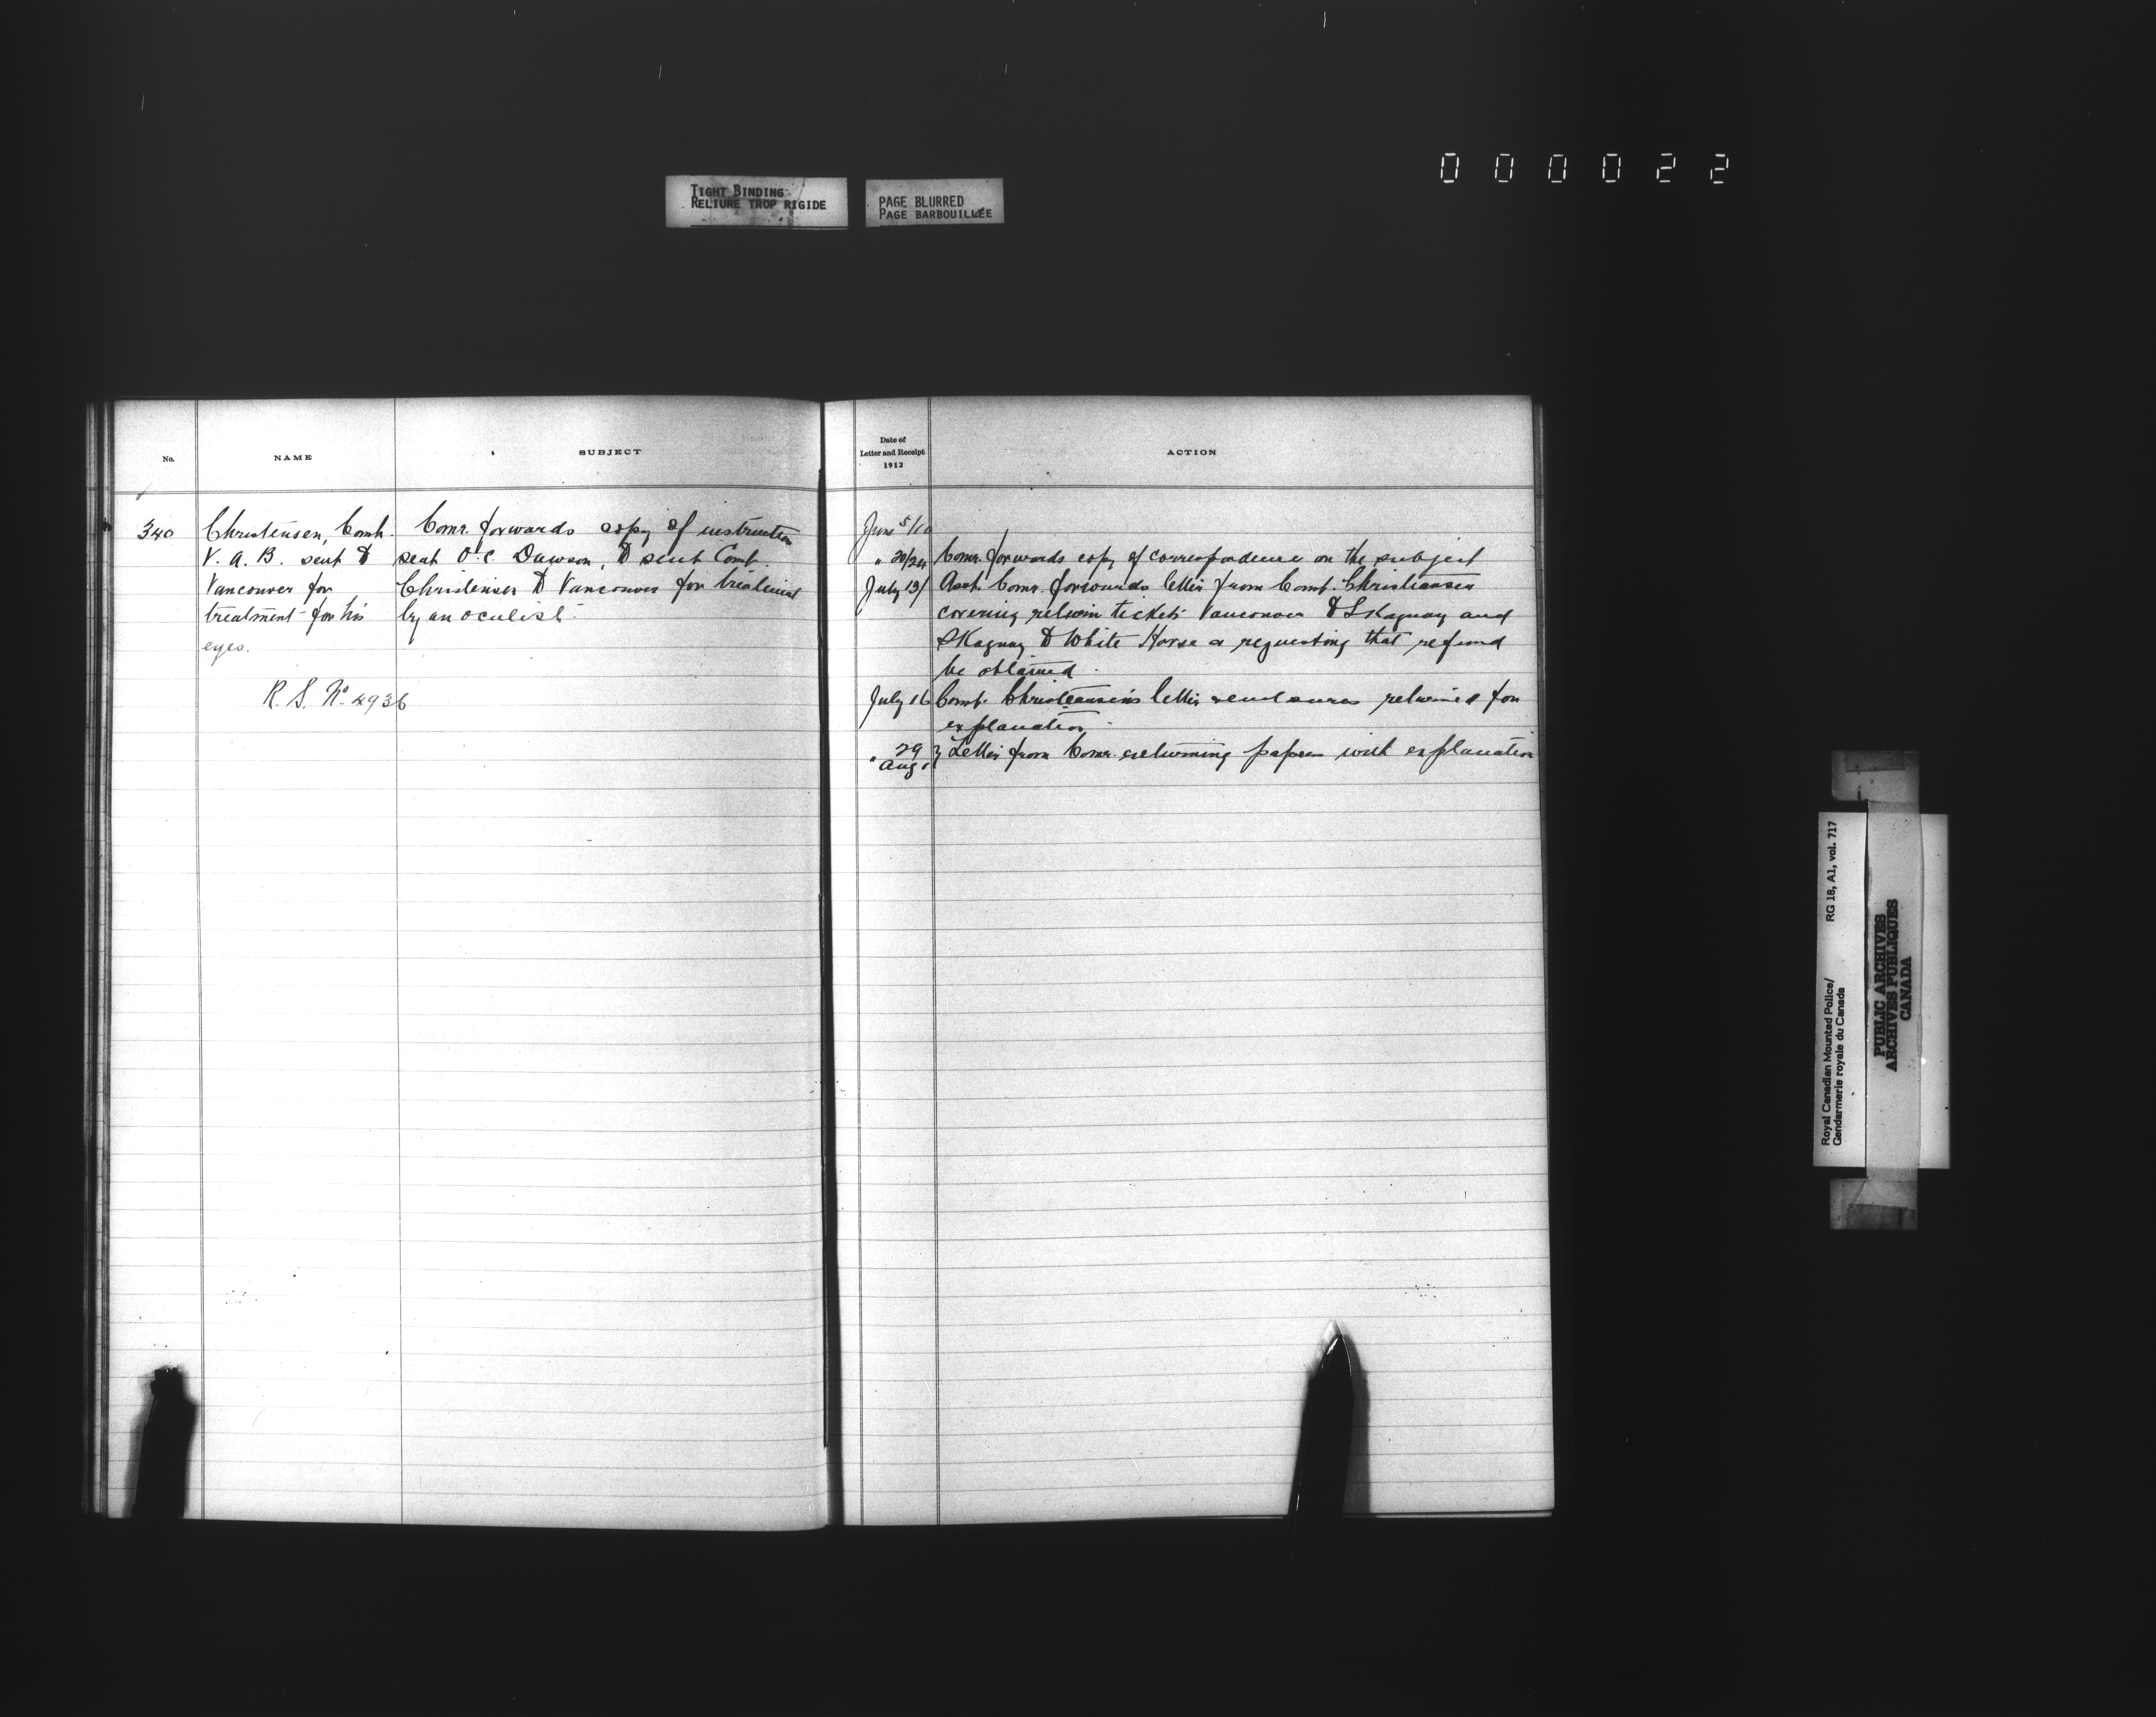 000022
TIGHT BINDING
RELIURE TROP RIGIDE
PAGE BLURRED
PAGE BARBOUILLÉE
No.
NAME
SUBJECT
340
Christensen, Comb.
V. A. B. sent to
Vancouver for
treatment for his
eyes.
R. S. No. 4936
Comr. forwards copy of instruction
sent O.C. Dawson, to send Const.
Christensen to Vancouver for treatment
by an oculist.
Date of
Letter and Receipt
1912
ACTION
June 5/10
" 20/24 Comr. forwards copy of correspondence on the subject
July 13/ Asst. Comr. forwards letter from Const. Christiansen
covering return tickets Vancouver to Skaguay and
Skaguay to White Horse & requesting that refund
be obtained.
July 16 Const. Christiansen's letter & enclosures returned for
explanation.
" 29
Aug 1 } Letter from Comr. returning papers with explanation
Royal Canadian Mounted Police/
Gendarmerie royale du Canada
RG 18, A1, vol. 717
PUBLIC ARCHIVES
ARCHIVES PUBLIQUES
CANADA